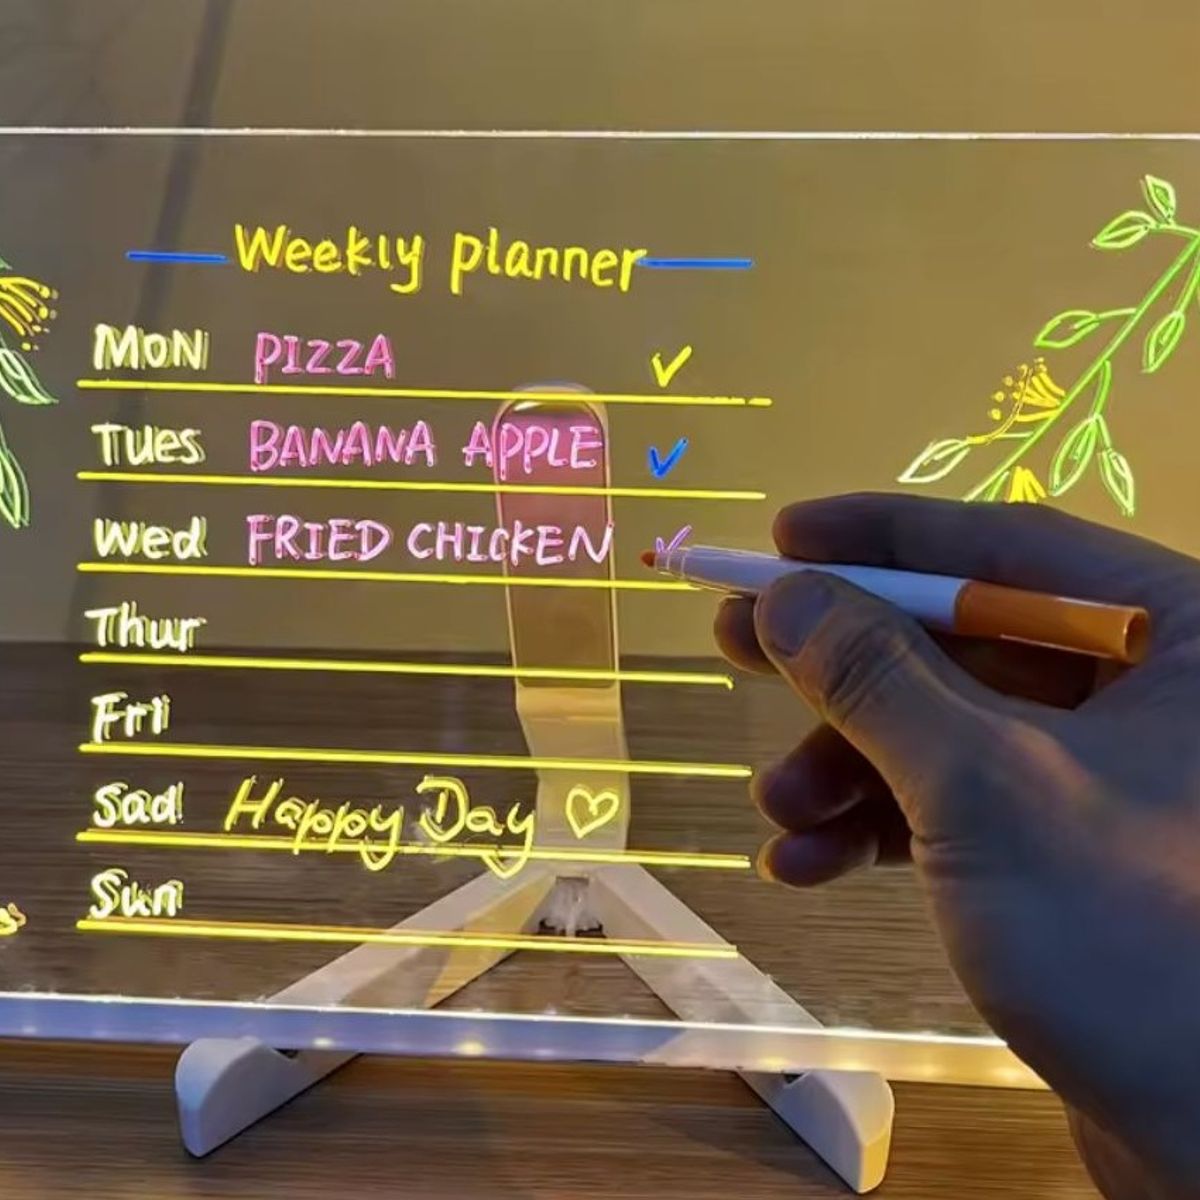 Weekly planner
MON PIZZA ✓
Tues BANANA APPLE ✓
Wed FRIED CHICKEN ✓
Thur
Fri
Sad Happy Day ♡
Sun